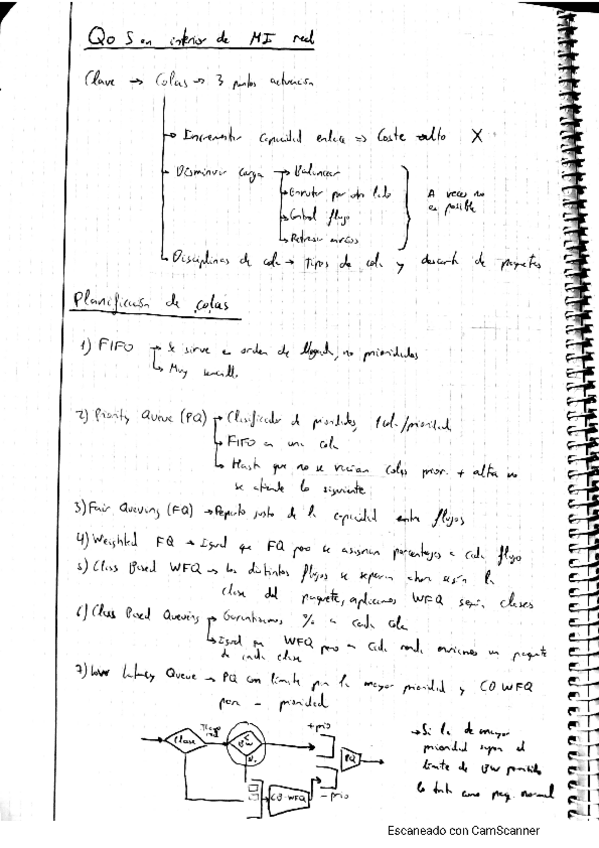 QoS en interior de MI red
Clave → Colas → 3 puntos actuación
→ Incrementar capacidad enlace ⇒ Coste alto X
→ Disminuir carga → Balancear
→ Enrutar por otro lado
→ Control flujo
→ Retrasar envíos
A veces no
es posible
→ Disciplinas de cola → tipos de cola y descarte de paquetes
Planificación de colas
1) FIFO → Se sirve en orden de llegada, no prioridades
→ Muy sencillo
2) Priority Queue (PQ) → Clasificador de prioridades, 1 cola/prioridad
→ FIFO en una cola
→ Hasta que no se vacían colas prior. + alta no
se atiende la siguiente
3) Fair Queuing (FQ) → Reparto justo de la capacidad entre flujos
4) Weighted FQ → Igual que FQ pero se asignan porcentajes a cada flujo
5) Class Based WFQ → los distintos flujos se separan ahora según la
clase del paquete, aplicamos WFQ según clases
6) Class Based Queuing → Garantizamos % a cada cola
→ Igual que WFQ pero en cada ronda enviamos un paquete
de cada clase
7) Low Latency Queue → PQ con límite para la mayor prioridad y CB WFQ
para - prioridad
Clase
BW
No
+ prio
PQ
CB-WFQ
- prio
→ Si la de mayor
prioridad supera el
límite de BW permitido
lo trata como paq. normal
Escaneado con CamScanner